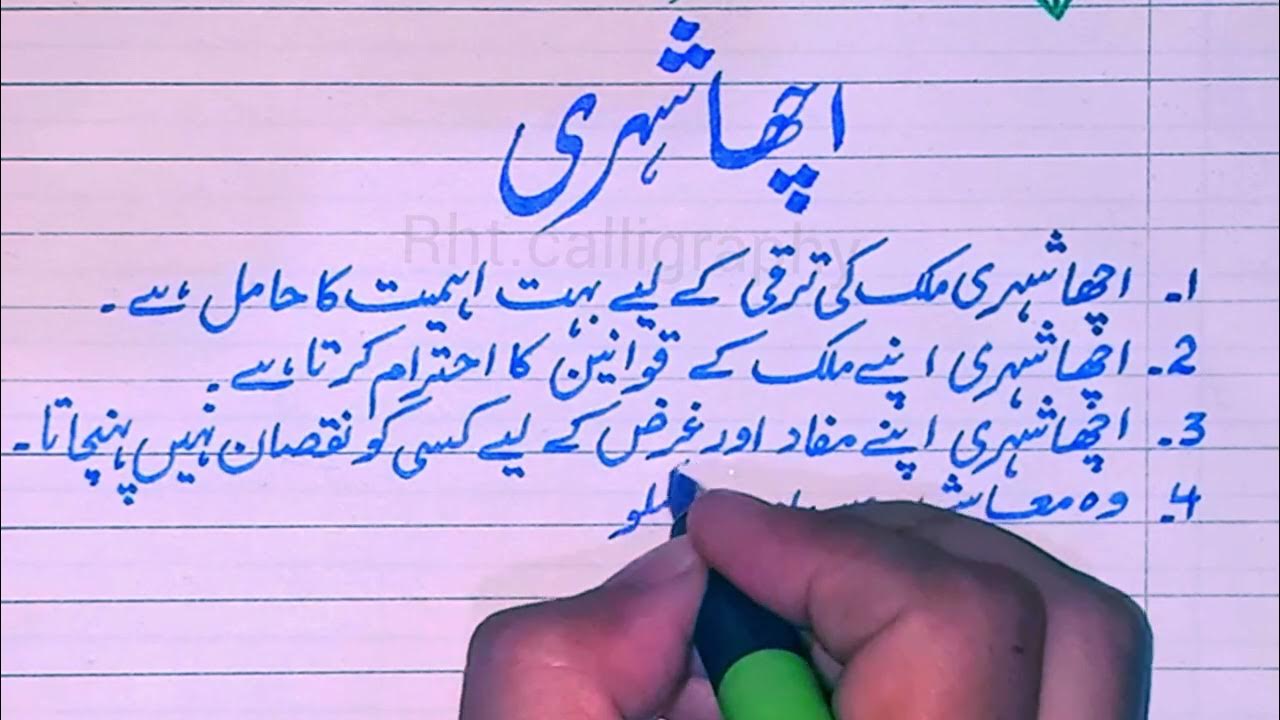 اچھا شہری
Rht.calligraphy
1. اچھا شہری ملک کی ترقی کے لیے بہت اہمیت کا حامل ہے۔
2. اچھا شہری اپنے ملک کے قوانین کا احترام کرتا ہے۔
3. اچھا شہری اپنے مفاد اور غرض کے لیے کسی کو نقصان نہیں پہنچاتا۔
4. وہ